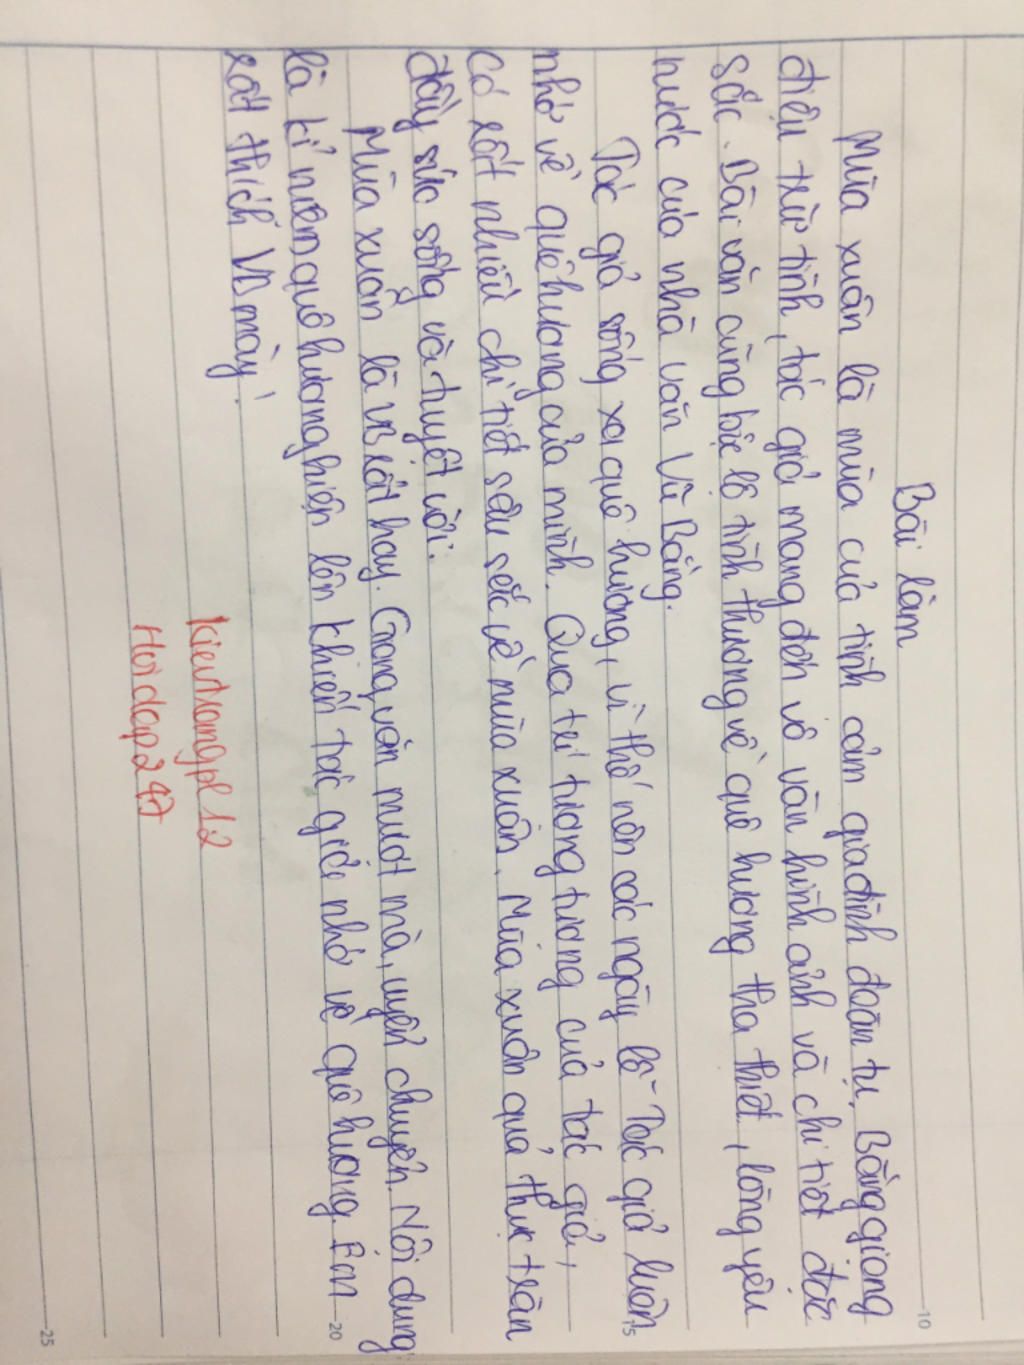 Bài làm
Mùa xuân là mùa của tình cảm gia đình đoàn tụ. Bằng giọng
điệu trữ tình, tác giả mang đến vô vàn hình ảnh và chi tiết đặc
sắc. Bài văn cũng bộc lộ tình thương về quê hương tha thiết, lòng yêu
nước của nhà văn Vũ Bằng.
Tác giả sống xa quê hương, vì thế nên các ngày lễ Tác giả luôn
nhớ về quê hương của mình. Qua trí tưởng tượng của tác giả,
có rất nhiều chi tiết sâu sắc về mùa xuân. Mùa xuân quả thực tràn
đầy sức sống và tuyệt vời.
Mùa xuân là VB rất hay. Giọng văn mượt mà, uyển chuyển. Nội dung
là kỉ niệm quê hương hiện lên khiến tác giả nhớ về quê hương. Em
rất thích VB này!
kieutrangpl12
Hoidap247
10
15
20
25